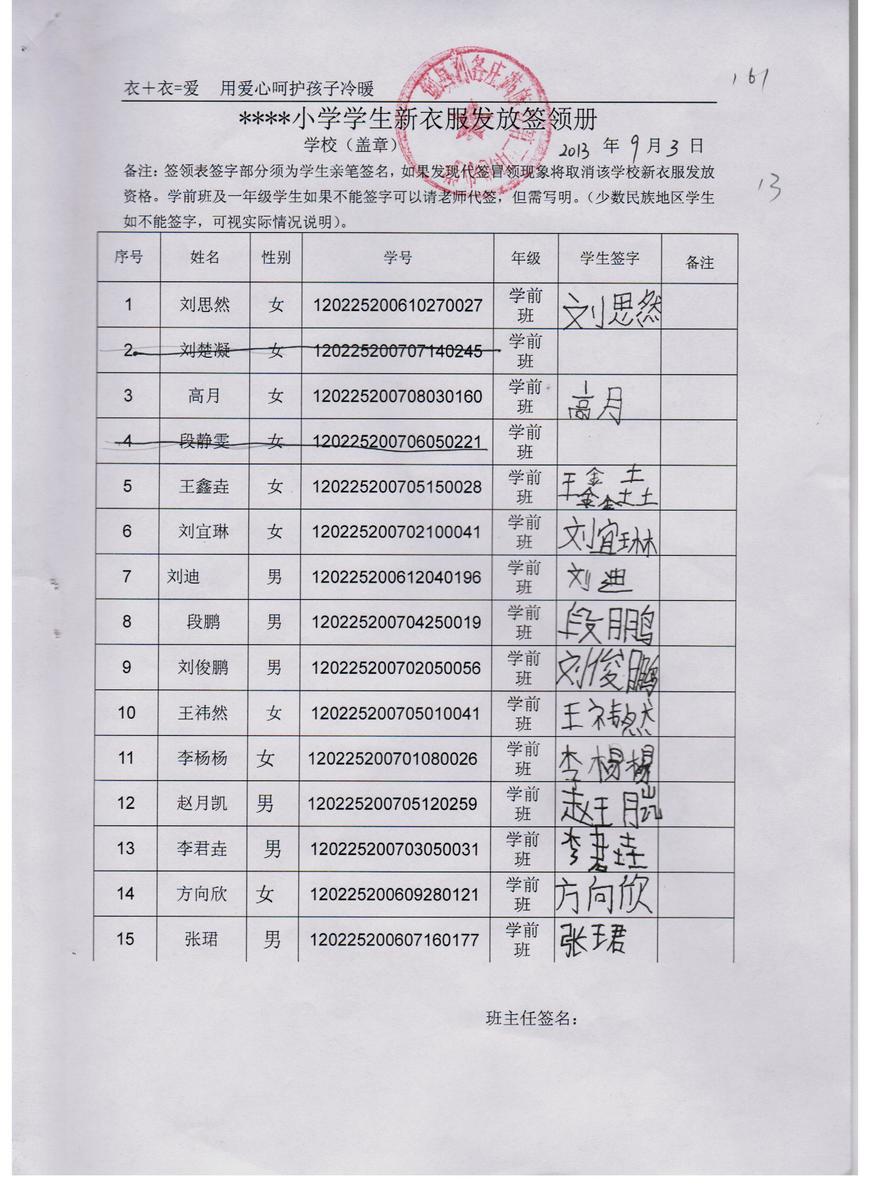 161
衣＋衣=爱 用爱心呵护孩子冷暖
****小学学生新衣服发放签领册
学校（盖章） 2013 年 9 月 3 日
13
备注：签领表签字部分须为学生亲笔签名，如果发现代签冒领现象将取消该学校新衣服发放
资格。学前班及一年级学生如果不能签字可以请老师代签，但需写明。（少数民族地区学生
如不能签字，可视实际情况说明）。
序号 姓名 性别 学号 年级 学生签字 备注
1 刘思然 女 120225200610270027 学前班 刘思然
2 刘楚凝 女 120225200707140245 学前班
3 高月 女 120225200708030160 学前班 高月
4 段静雯 女 120225200706050221 学前班
5 王鑫垚 女 120225200705150028 学前班 王鑫垚
6 刘宜琳 女 120225200702100041 学前班 刘宜琳
7 刘迪 男 120225200612040196 学前班 刘迪
8 段鹏 男 120225200704250019 学前班 段鹏
9 刘俊鹏 男 120225200702050056 学前班 刘俊鹏
10 王祎然 女 120225200705010041 学前班 王祎然
11 李杨杨 女 120225200701080026 学前班 李杨杨
12 赵月凯 男 120225200705120259 学前班
13 李君垚 男 120225200703050031 学前班 李君垚
14 方向欣 女 120225200609280121 学前班 方向欣
15 张珺 男 120225200607160177 学前班 张珺
班主任签名：